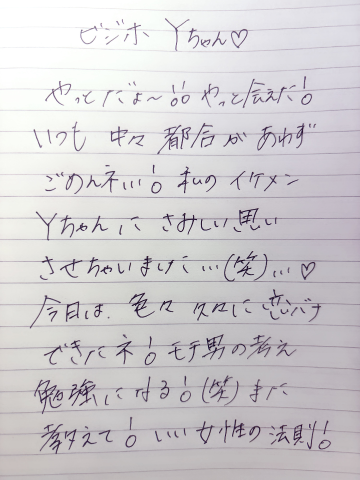 ビジホ Yちゃん♡
やっとだょ〜!!! やっと会えた!
いつも 中々 都合が あわず
ごめんネ…! 私の イケメン
Yちゃんに さみしい思い
させちゃいました…(笑)…♡
今日は、色々 久々に 恋バナ
できたネ! モテ男の考え
勉強になる!(笑) また
教えて! いい女性の法則!